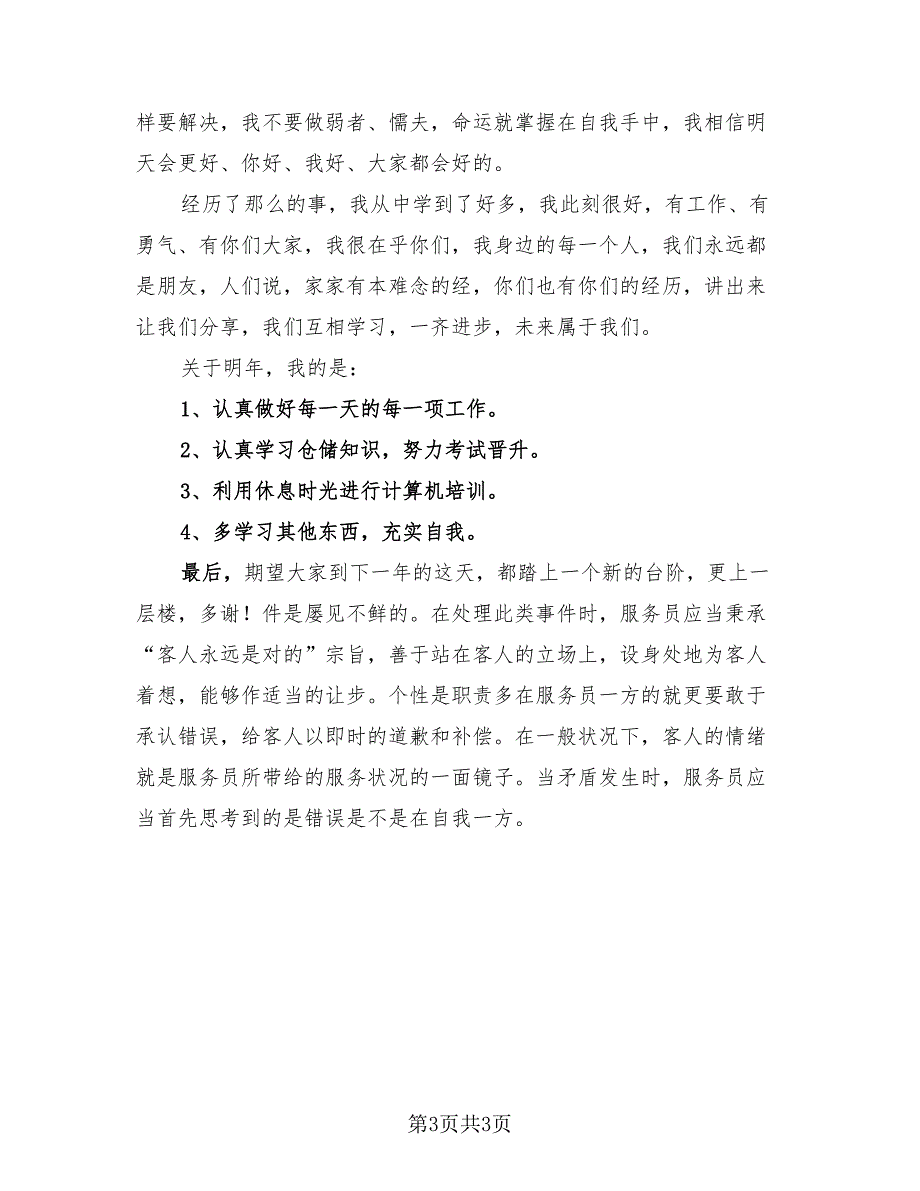 样要解决，我不要做弱者、懦夫，命运就掌握在自我手中，我相信明
天会更好、你好、我好、大家都会好的。
经历了那么的事，我从中学到了好多，我此刻很好，有工作、有
勇气、有你们大家，我很在乎你们，我身边的每一个人，我们永远都
是朋友，人们说，家家有本难念的经，你们也有你们的经历，讲出来
让我们分享，我们互相学习，一齐进步，未来属于我们。
关于明年，我的是：
1、认真做好每一天的每一项工作。
2、认真学习仓储知识，努力考试晋升。
3、利用休息时光进行计算机培训。
4、多学习其他东西，充实自我。
最后，期望大家到下一年的这天，都踏上一个新的台阶，更上一
层楼，多谢！件是屡见不鲜的。在处理此类事件时，服务员应当秉承
“客人永远是对的”宗旨，善于站在客人的立场上，设身处地为客人
着想，能够作适当的让步。个性是职责多在服务员一方的就更要敢于
承认错误，给客人以即时的道歉和补偿。在一般状况下，客人的情绪
就是服务员所带给的服务状况的一面镜子。当矛盾发生时，服务员应
当首先思考到的是错误是不是在自我一方。
第3页共3页